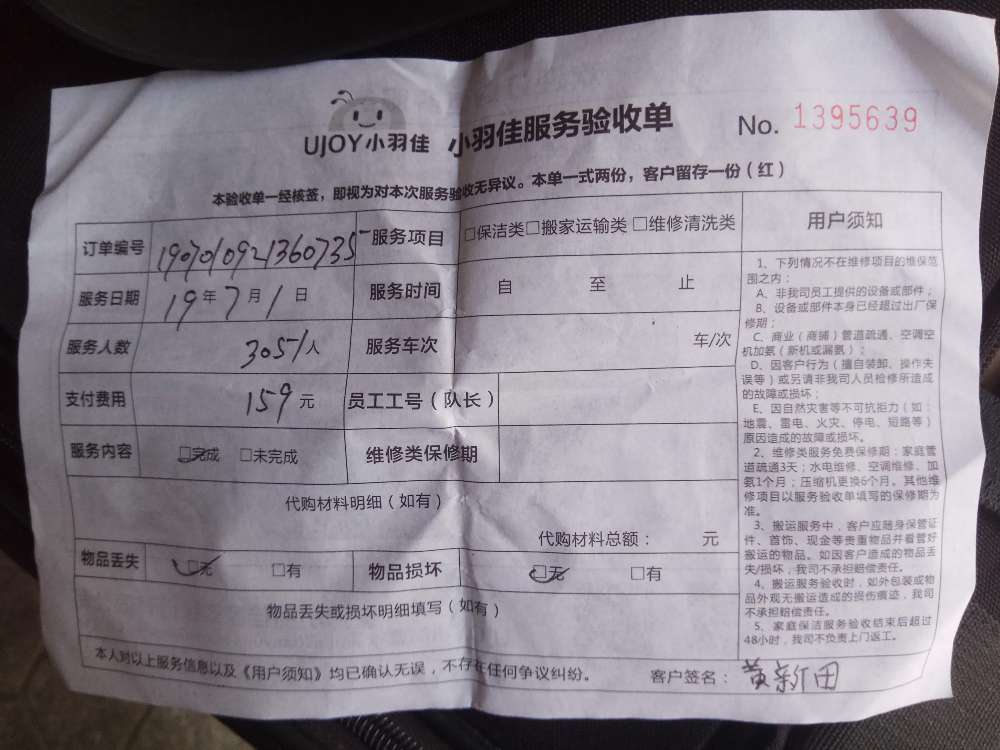 UJOY小羽佳 小羽佳服务验收单 No. 1395639
本验收单一经核签，即视为对本次服务验收无异议。本单一式两份，客户留存一份（红）
订单编号 1907010921360735 服务项目 □保洁类□搬家运输类□维修清洗类
服务日期 19年7月1日 服务时间 自 至 止
服务人数 3051人 服务车次 车/次
支付费用 159元 员工工号（队长）
服务内容 □完成 □未完成 维修类保修期
代购材料明细（如有）
代购材料总额： 元
物品丢失 □无 □有 物品损坏 □无 □有
物品丢失或损坏明细填写（如有）
用户须知
1、下列情况不在维修项目的维保范
围之内：
A、非我司员工提供的设备或部件；
B、设备或部件本身已经超过出厂保
修期；
C、商业（商铺）管道疏通、空调空
机加氨（新机或漏氨）；
D、因客户行为（擅自装卸、操作失
误等）或另请非我司人员检修所造成
的故障或损坏；
E、因自然灾害等不可抗拒力（如：
地震、雷电、火灾、停电、短路等）
原因造成的故障或损坏。
2、维修类服务免费保修期：家庭管
道疏通3天；水电维修、空调维修、加
氨1个月；压缩机更换6个月。其他维
修项目以服务验收单填写的保修期为
准。
3、搬运服务中，客户应随身保管证
件、首饰、现金等贵重物品并看管好
搬运的物品。如因客户造成的物品丢
失/损坏，我司不承担赔偿责任。
4、搬运服务验收时，如外包装或物
品外观无搬运造成的损伤痕迹，我司
不承担赔偿责任。
5、家庭保洁服务验收结束后超过
48小时，我司不负责上门返工。
本人对以上服务信息以及《用户须知》均已确认无误，不存在任何争议纠纷。 客户签名：黄新田